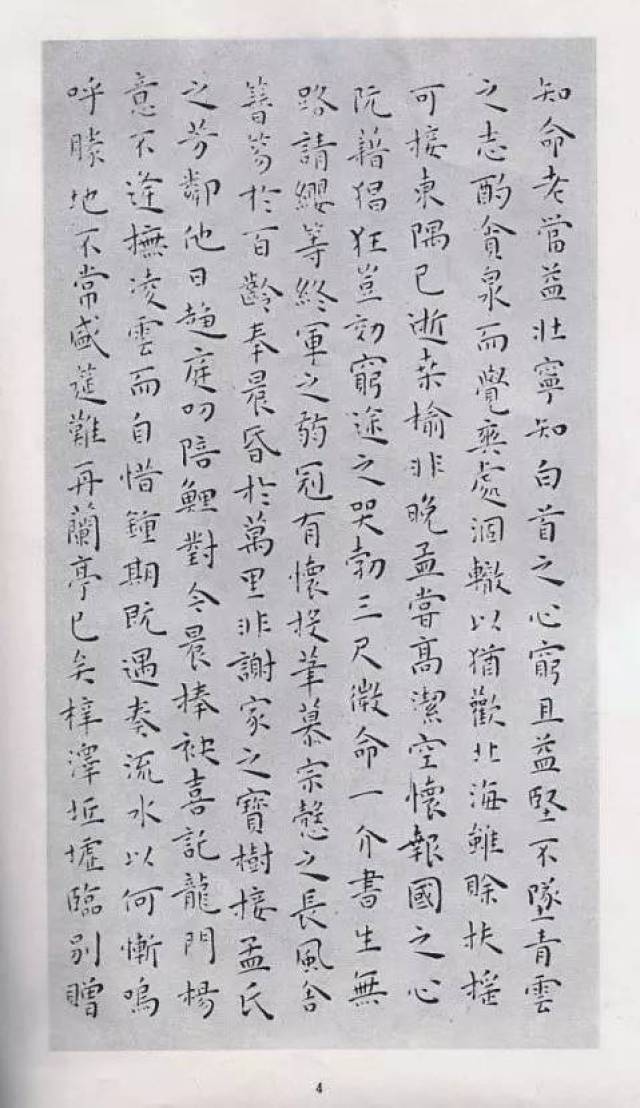 知命老當益壯寧知白首之心窮且益堅不墜青雲
之志酌貪泉而覺爽處涸轍以猶歡北海雖賒扶搖
可接東隅已逝桑榆非晚孟嘗高潔空懷報國之心
阮籍猖狂豈効窮途之哭勃三尺微命一介書生無
路請纓等終軍之弱冠有懷投筆慕宗慤之長風舍
簪笏於百齡奉晨昏於萬里非謝家之寶樹接孟氏
之芳鄰他日趨庭叨陪鯉對今晨捧袂喜託龍門楊
意不逢撫凌雲而自惜鐘期既遇奏流水以何慚嗚
呼勝地不常盛筵難再蘭亭已矣梓澤坵墟臨別贈
4